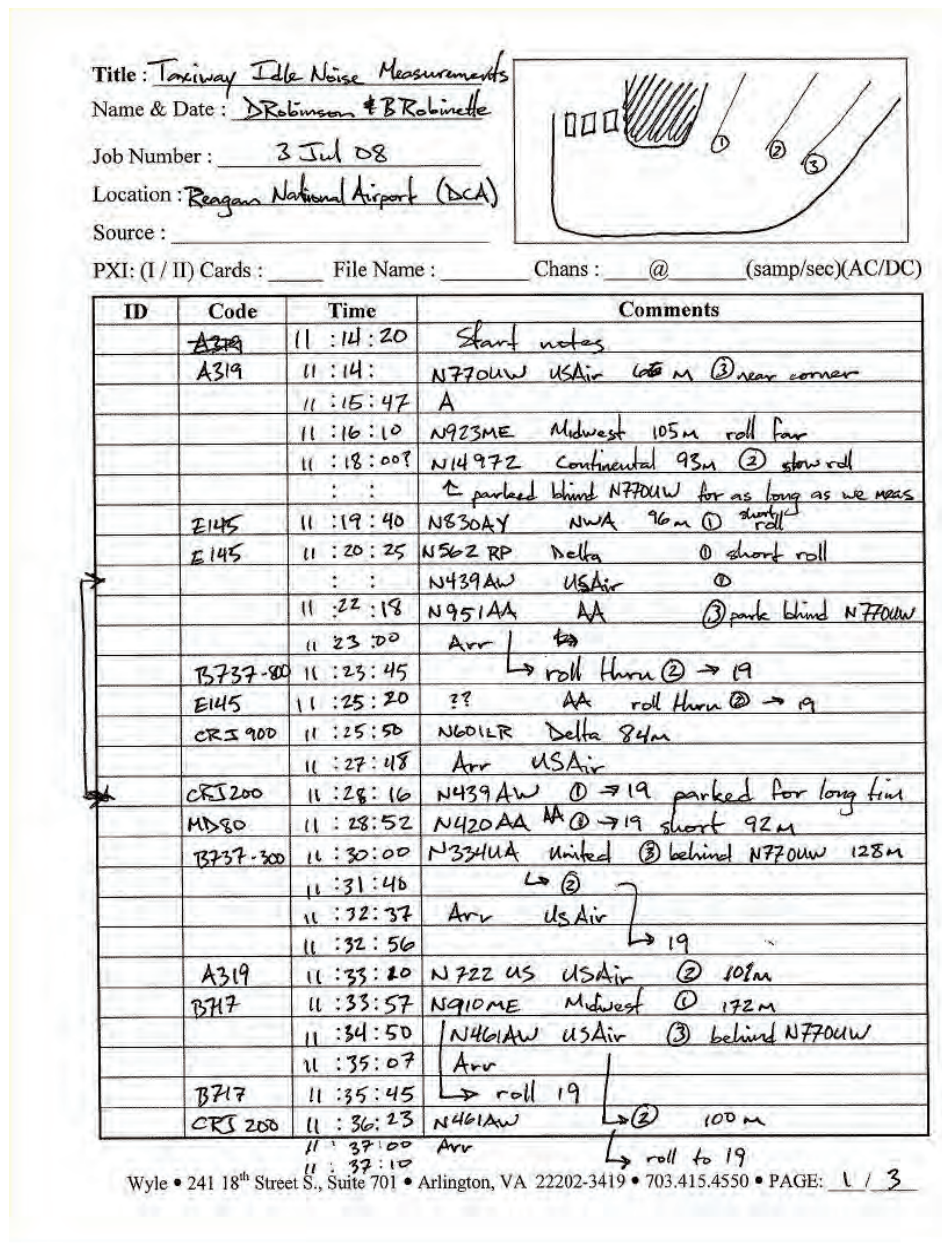 Title : Taxiway Idle Noise Measurements
Name & Date : D Robinson & B Robinette
Job Number : 3 Jul 08
Location : Reagan National Airport (DCA)
Source :
① ② ③
PXI: (I / II) Cards : File Name : Chans : @ (samp/sec)(AC/DC)
ID Code Time Comments
A319 11 :14 : 20 Start notes
A319 11 :14 : N770UW USAir M ③ near corner
11 :15 : 47 A
11 :16 : 10 N923ME Midwest 105M roll far
11 :18 : 00? N14972 Continental 93M ② slow roll
: : ↑ parked behind N770UW for as long as we meas
E145 11 :19 : 40 N830AY NWA 96M ① short roll
E145 11 :20 : 25 N562RP Delta ① short roll
: : N439AW USAir ①
11 :22 : 18 N951AA AA ③ park behind N770UW
11 23 :00 Arr
B737-800 11 :23 : 45 ↳ roll thru ② → 19
E145 11 :25 : 20 ?? AA roll thru ② → 19
CRJ 900 11 :25 : 50 N601LR Delta 84M
11 :27 : 48 Arr USAir
CRJ200 11 :28 : 16 N439AW ① → 19 parked for long tim
MD80 11 :28 : 52 N420AA AA ① → 19 short 92M
B737-300 11 :30 : 00 N334UA United ③ behind N770UW 128M
11 :31 : 40 ↳ ②
11 :32 : 37 Arr US Air
11 :32 : 56 ↳ 19
A319 11 :33 : 20 N722 US USAir ② 102M
B717 11 :33 : 57 N910ME Midwest ① 172M
11 :34 : 50 N461AW USAir ③ behind N770UW
11 :35 : 07 Arr
B717 11 :35 : 45 ↳ roll 19
CRJ 200 11 : 36 : 23 N461AW ↳ ② 100 M
11 : 37 : 00 Arr
11 : 37 : 10 ↳ roll to 19
Wyle • 241 18th Street S., Suite 701 • Arlington, VA 22202-3419 • 703.415.4550 • PAGE: 1 / 3